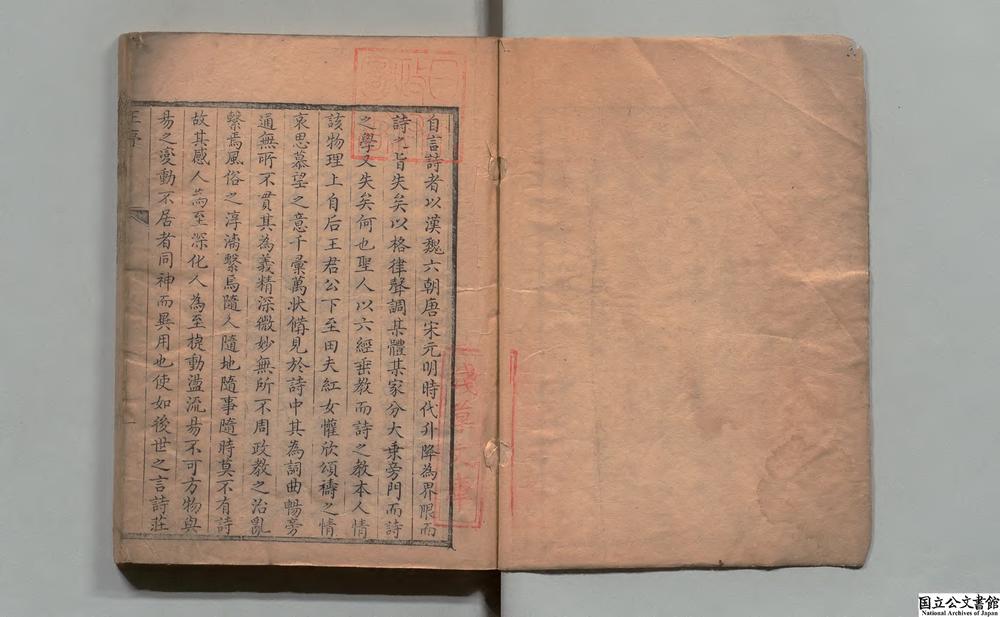 自言詩者以漢魏六朝唐宋元明時代升降為界限而
詩之旨失矣以格律聲調某體某家分大乗旁門而詩
之學又失矣何也聖人以六經垂教而詩之教本人情
該物理上自后王君公下至田夫紅女懽欣頌禱之情
哀思慕望之意千彙萬状備見於詩中其為詞曲暢旁
通無所不貫其為義精深微妙無所不周政教之治亂
繫焉風俗之淳漓繫焉隨人隨地隨事隨時莫不有詩
故其感人為至深化人為至捷動盪流易不可方物與
易之變動不居者同神而異用也使如後世之言詩莊
王序
一
国立公文書館
National Archives of Japan